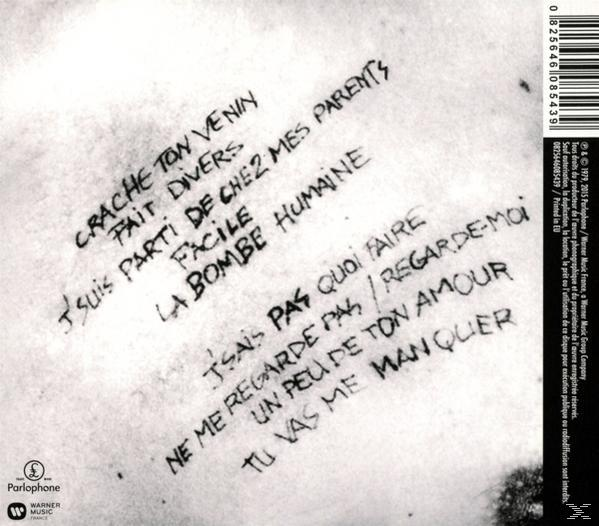 CRACHE TON VENIN
FAIT DIVERS
J'SUIS PARTI DE CHEZ MES PARENTS
FACILE
LA BOMBE HUMAINE
J'SAIS PAS QUOI FAIRE
NE ME REGARDE PAS / REGARDE-MOI
UN PEU DE TON AMOUR
TU VAS ME MANQUER
0 825646 085439
℗ & © 1979, 2015 Parlophone / Warner Music France, a Warner Music Group Company
Tous droits du producteur de l'œuvre phonographique et du propriétaire de l'œuvre enregistrée réservés.
Sauf autorisation, la duplication, la location, le prêt ou l'utilisation de ce disque pour exécution publique ou radiodiffusion sont interdits.
0825646085439 / Printed in EU
£
TRADE MARK
Parlophone
WARNER
MUSIC
FRANCE